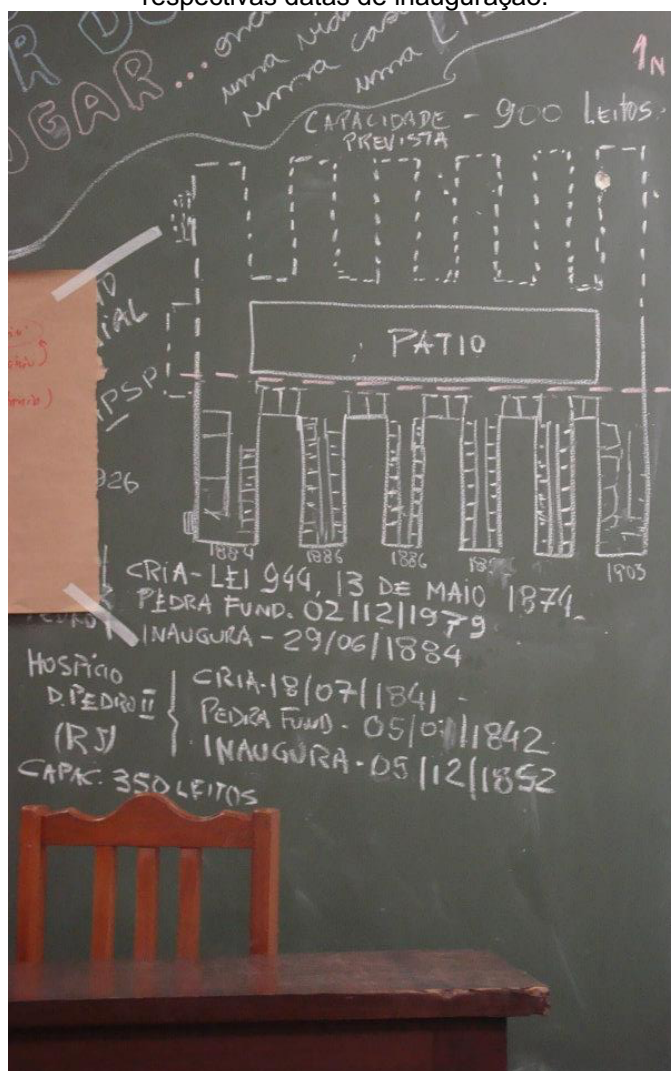 respectivas datas de inauguração.
R DO
OGAR... onde
uma vida
uma casa
uma
1N
CAPACIDADE - 900 LEITOS
PREVISTA
IAL
PSP
926
PÁTIO
1884 1886 1886 1903
CRIA-LEI 944, 13 DE MAIO 1874
PEDRA FUND. 02/12/1979
INAUGURA - 29/06/1884
HOSPÍCIO
D. PEDRO II
(RJ)
CRIA-18/07/1841 -
PEDRA FUND - 05/07/1842
INAUGURA - 05/12/1852
CAPAC. 350 LEITOS